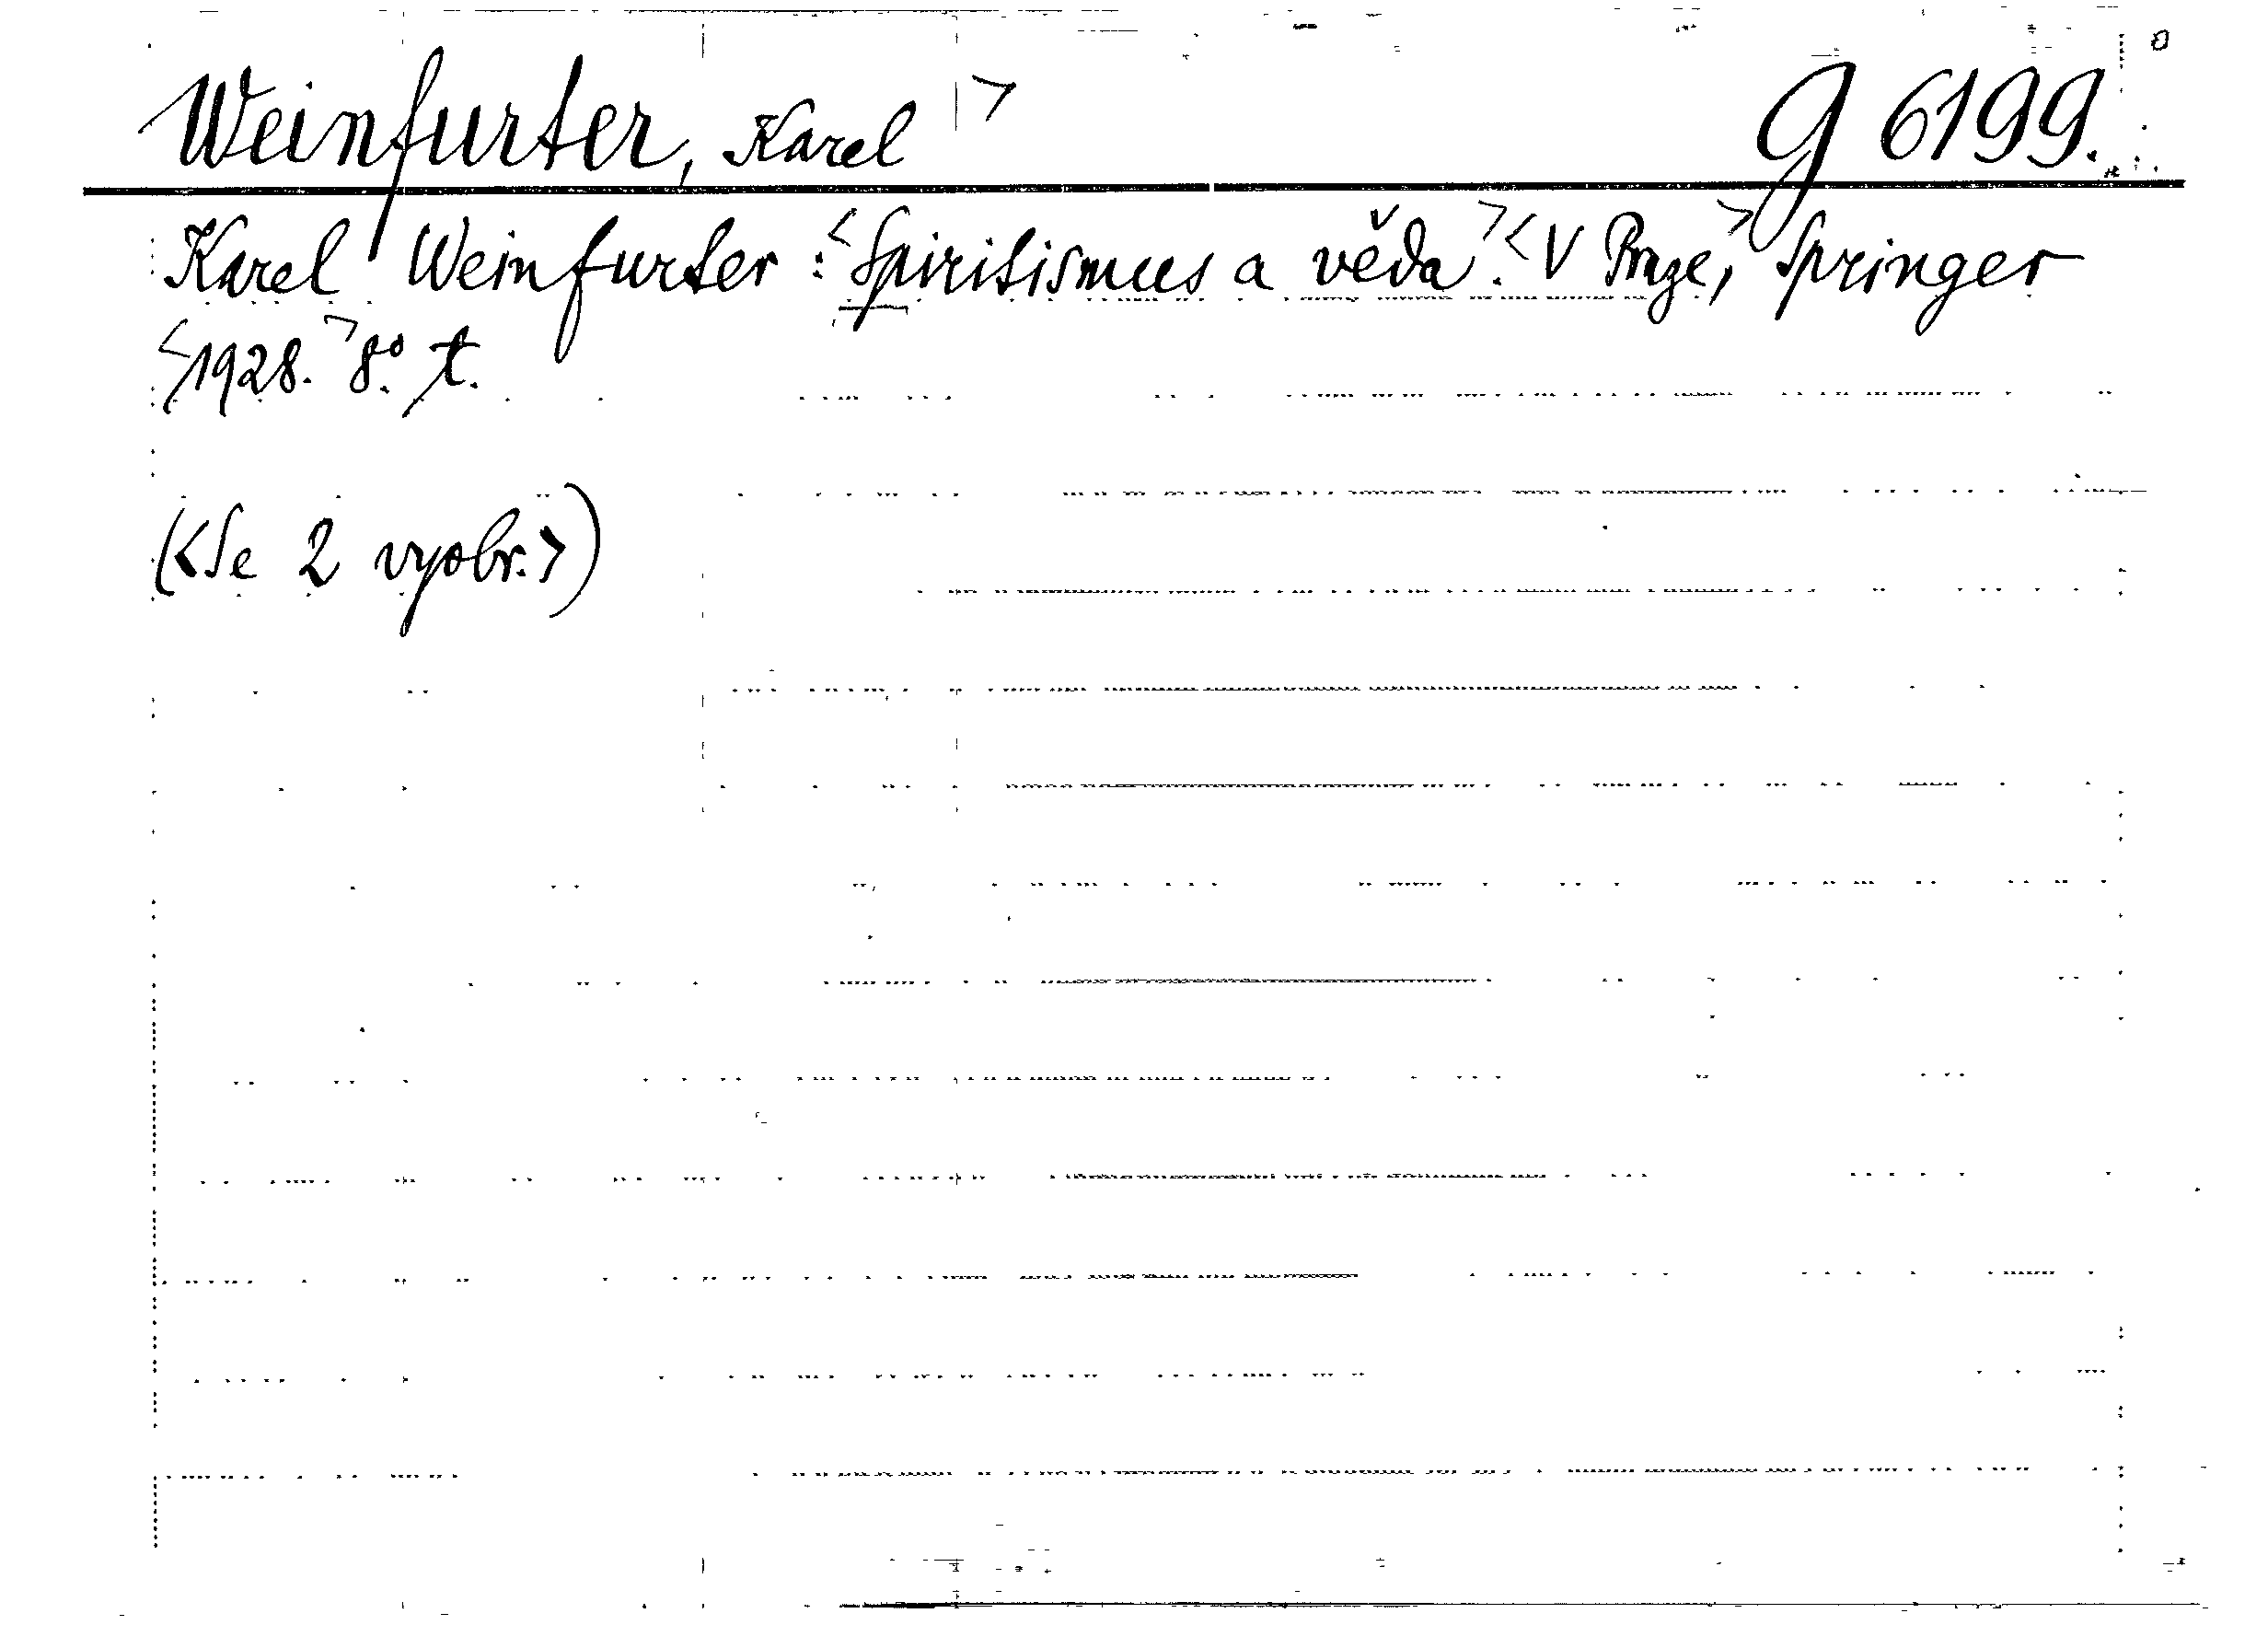 Weinfurter, Karel > g 6199.
Karel Weinfurter : <Spiritismus a věda>. <V Praze,> Springer
<1928.> 8°. t.
(<Se 2 vyobr.>)